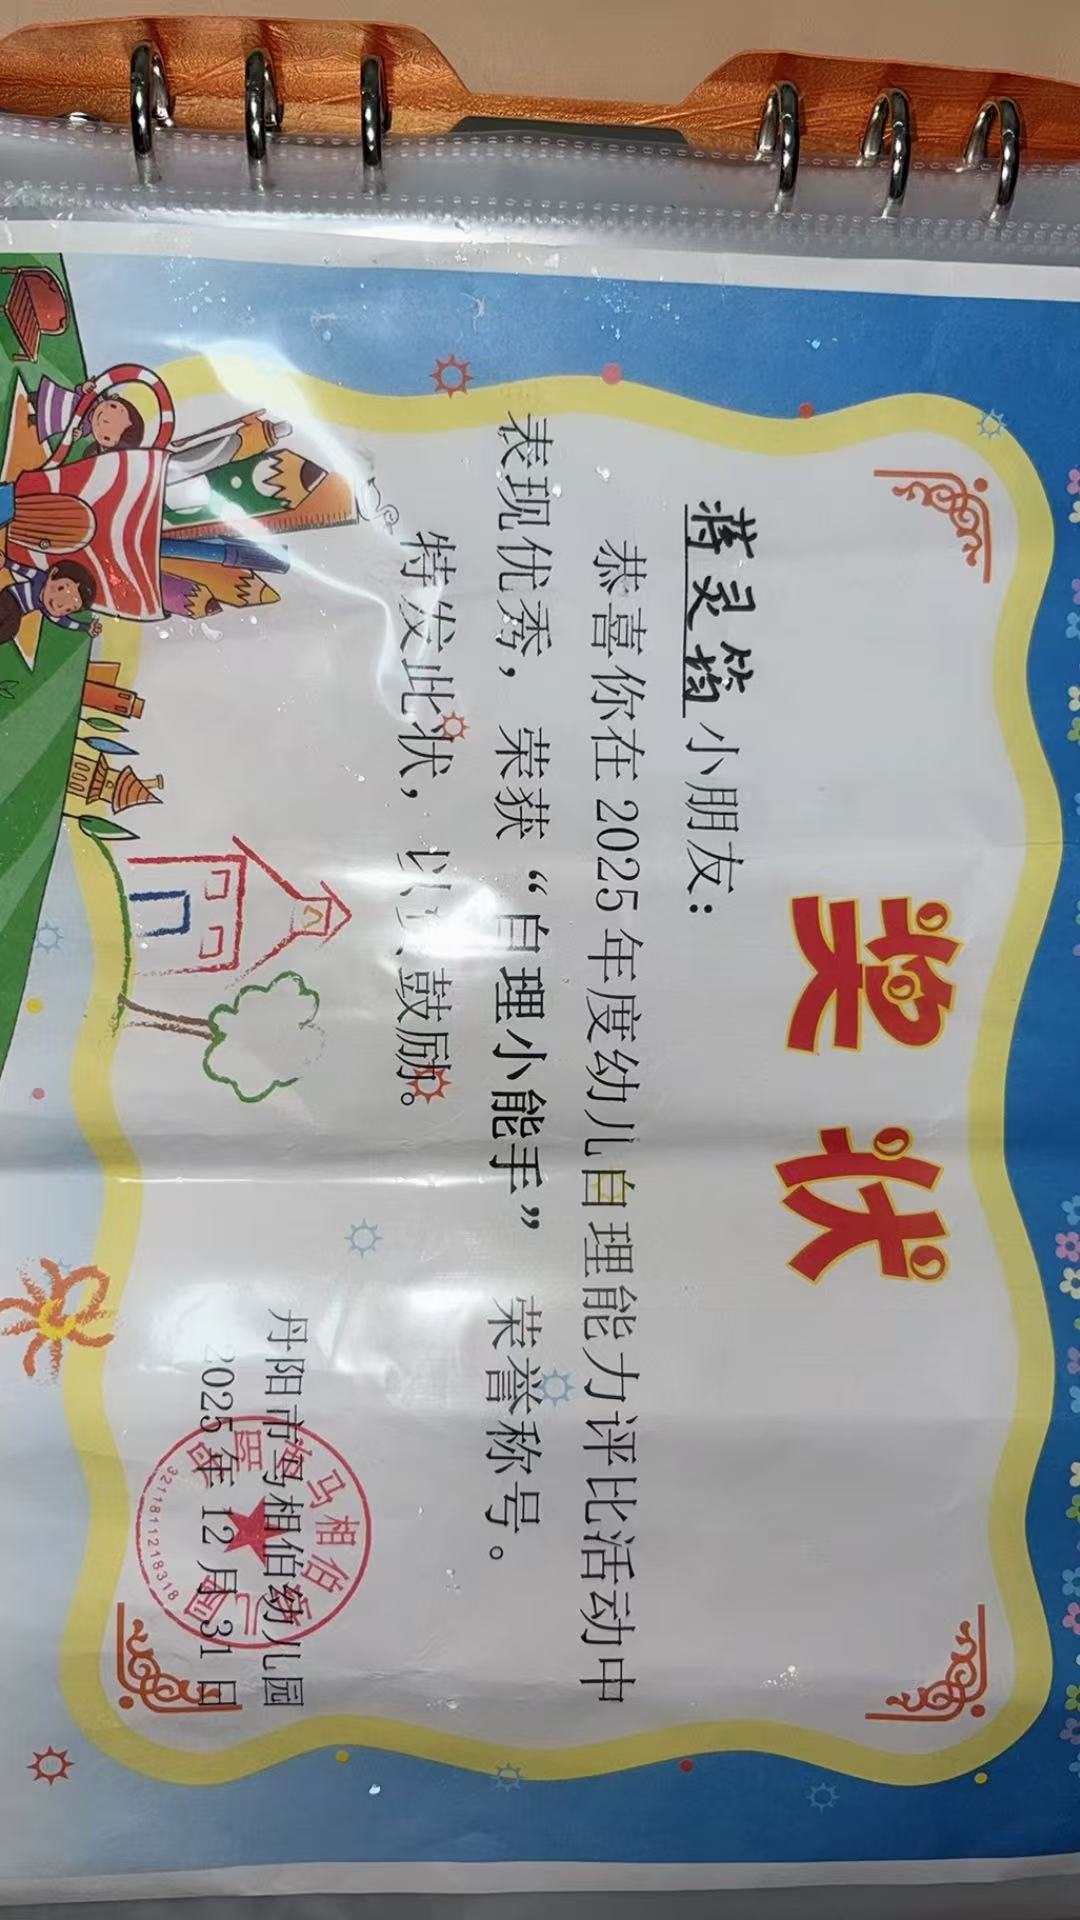 奖状
蒋灵筠小朋友：
恭喜你在2025年度幼儿自理能力评比活动中
表现优秀，荣获“自理小能手”荣誉称号。
特发此状，以 鼓励。
丹阳市马相伯幼儿园
2025年12月31日
3211811218318